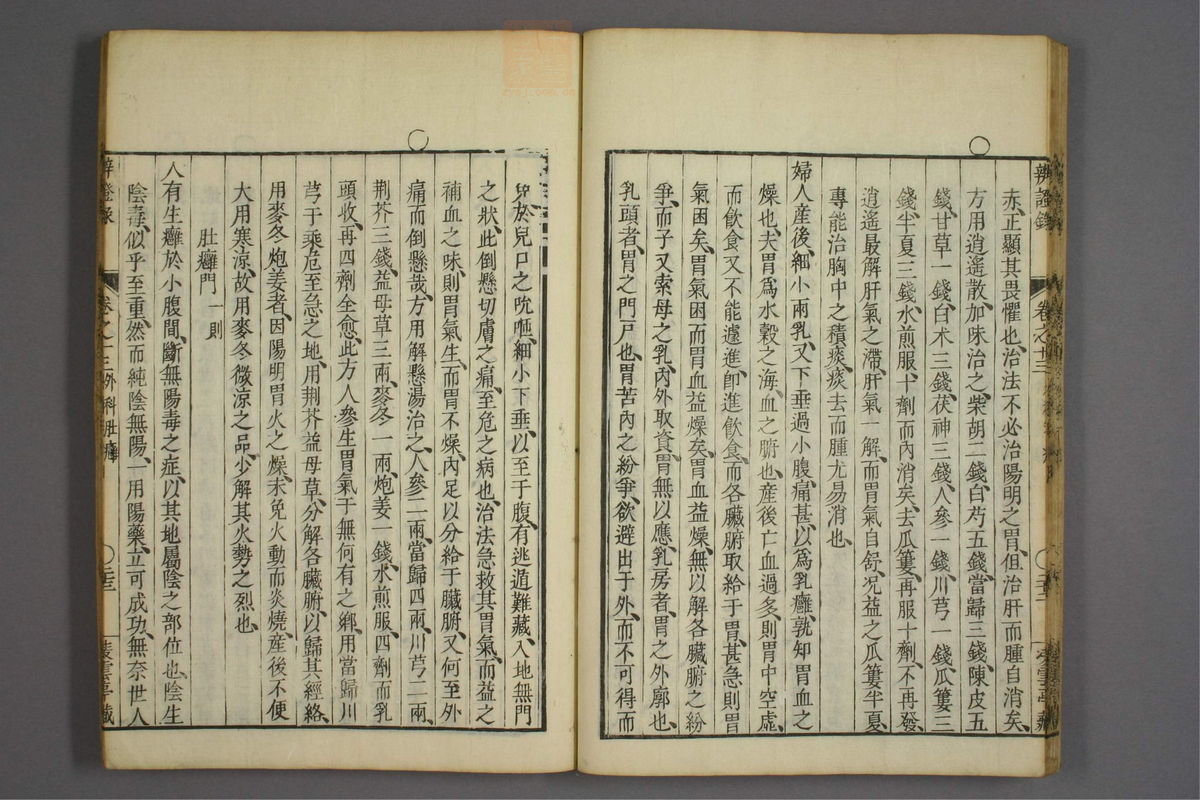 辨證錄 卷之十三
赤、正顯其畏懼也、治法不必治陽明之胃、但治肝而腫自消矣、
方用逍遙散加味治之、柴胡二錢、白芍五錢、當歸三錢、陳皮五
錢、甘草一錢、白术三錢、茯神三錢、人參一錢、川芎一錢、瓜簍三
錢、半夏三錢、水煎服、十劑而內消矣、去瓜簍、再服十劑、不再發、
逍遙最解肝氣之滯、肝氣一解、而胃氣自舒、况益之瓜簍半夏、
專能治胸中之積痰、痰去而腫尤易消也、
婦人產後、細小兩乳、又下垂過小腹、痛甚、以為乳癰、孰知胃血之
燥也、夫胃為水穀之海、血之腑也、產後亡血過多、則胃中空虛、
而飲食又不能遽進、卽進飲食、而各臟腑取給于胃、甚急則胃
氣困矣、胃氣困而胃血益燥矣、胃血益燥、無以解各臟腑之紛
爭、而子又索母之乳、內外取資、胃無以應、乳房者、胃之外廓也、
乳頭者、胃之門戶也、胃苦內之紛爭、欲避出于外、而不可得、而
兒於兒口之吮咂、細小下垂、以至于腹、有逃遁難藏、入地無門
之狀、此倒懸切膚之痛、至危之病也、治法急救其胃氣、而益之
補血之味、則胃氣生、而胃不燥、內足以分給于臟腑、又何至外
痛而倒懸哉、方用解懸湯治之、人參二兩、當歸四兩、川芎二兩、
荆芥三錢、益母草三兩、麥冬一兩、炮姜一錢、水煎服、四劑而乳
頭收、再四劑全愈、此方人參生胃氣于無何有之鄉、用當歸川
芎于乘危至急之地、用荆芥益母草、分解各臟腑、以歸其經絡、
用麥冬炮姜者、因陽明胃火之燥、未免火動而炎燒、產後不便
大用寒涼、故用麥冬微涼之品、少解其火勢之烈也、
肚癰門 一則
人有生癰於小腹間、斷無陽毒之症、以其地屬陰之部位也、陰生
陰毒、似乎至重、然而純陰無陽、一用陽藥、立可成功、無奈世人
辨證錄 卷之十三 外科肚癰